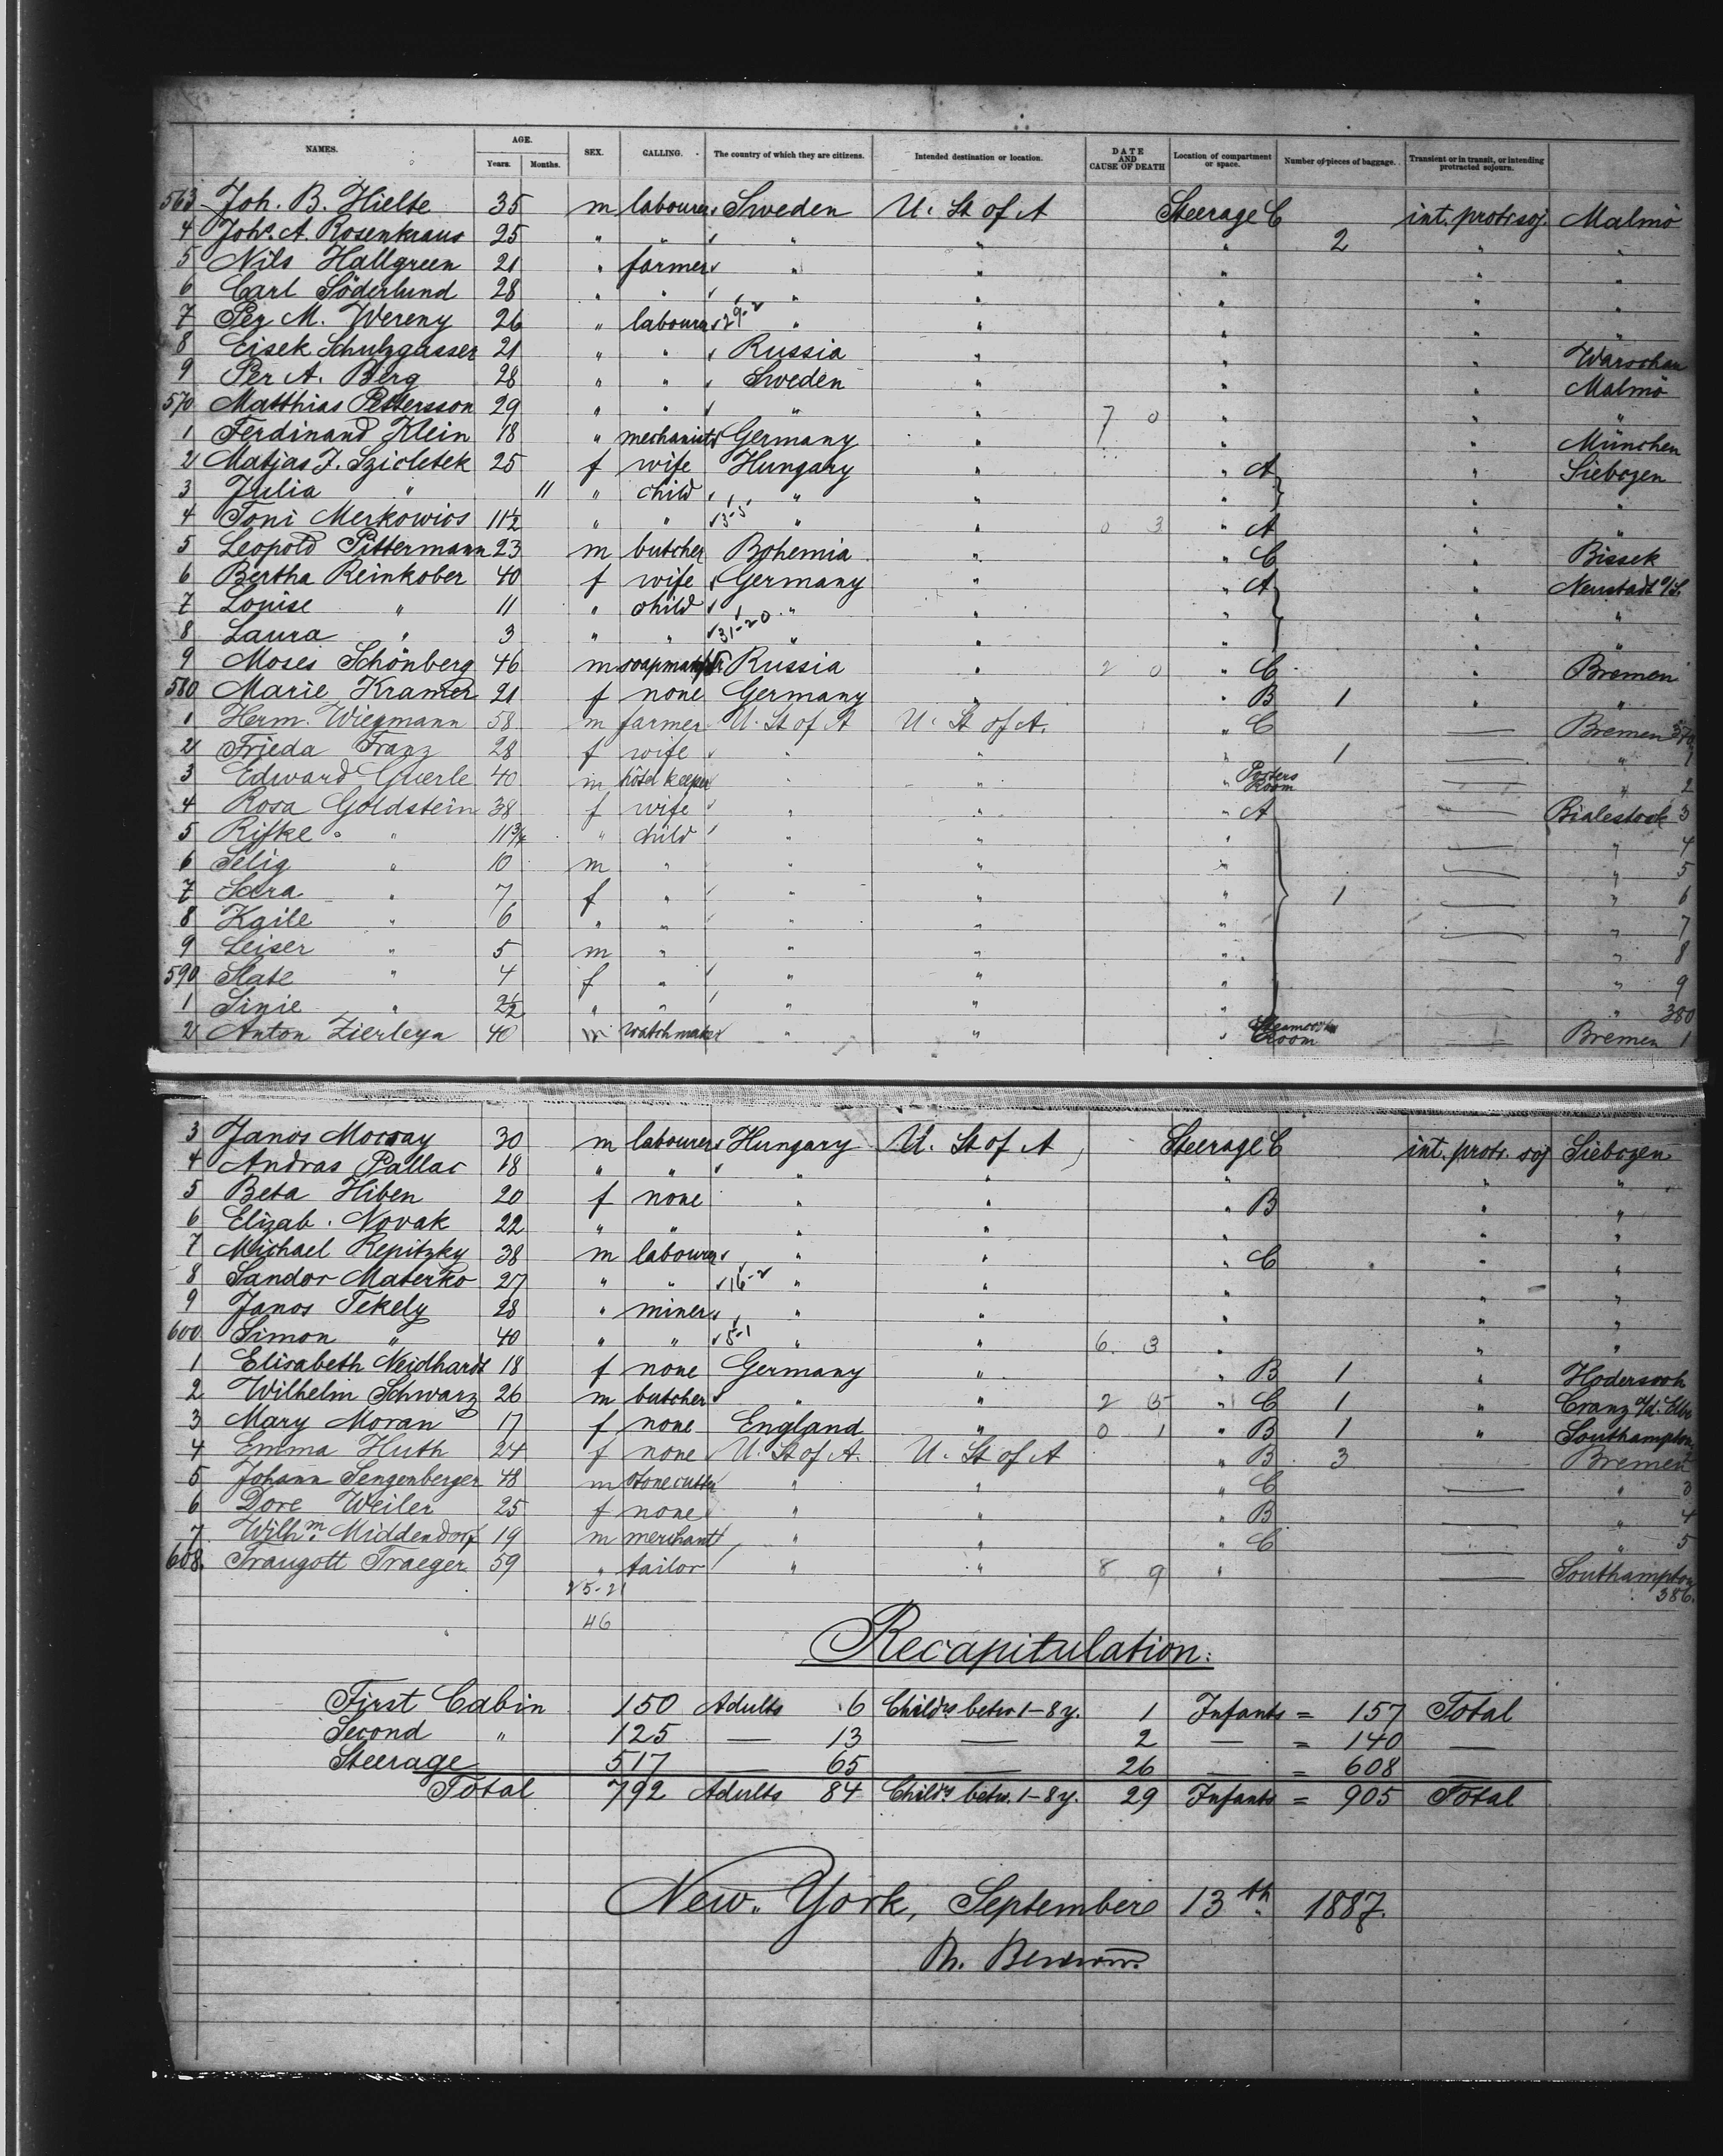 NAMES. AGE. Years. Months. SEX. CALLING. The country of which they are citizens. Intended destination or location. DATE AND CAUSE OF DEATH Location of compartment or space. Number of pieces of baggage. Transient or in transit, or intending protracted sojourn.
563 Joh. B. Hielte 35 m labourer Sweden U. St of A Steerage C int. protr. soj. Malmö
4 Johs. A. Rosenkraus 25 " " " " " 2 " "
5 Nils Hallgreen 21 " farmer " " " " "
6 Carl Söderlund 28 " " " " " " "
7 Per M. Wereny 26 " labourer 29-2 " " " " "
8 Eisek Schulzgasser 21 " " Russia " " " Warschau
9 Per A. Berg 28 " " Sweden " " " Malmö
570 Matthias Pettersson 29 " " " " 7 0 " " "
1 Ferdinand Klein 18 " mechanist Germany " " " München
2 Matjas J. Szicletek 25 f wife Hungary " " A " Siebozen
3 Julia " 11 " child " " " " "
4 Toni Merkowios 11½ " " 3-5 " " 0 3 " A " "
5 Leopold Pittermann 23 m butcher Bohemia " " C " Bissek
6 Bertha Reinkober 40 f wife Germany " " A " Neustadt o/S.
7 Louise " 11 " child " " " " "
8 Laura " 3 " " 31-20 " " " " "
9 Moses Schönberg 46 m soapmaker Russia " 2 0 " C " Bremen
580 Marie Kramer 21 f none Germany " " B 1 " "
1 Herm. Wiegmann 58 m farmer U. St of A U. St of A. " C — Bremen 370
2 Frieda Franz 28 f wife " " " 1 — " 1
3 Edward Guerle 40 m hôtel keeper " " " Porters Room — " 2
4 Rosa Goldstein 38 f wife " " " A — Bialestock 3
5 Rifke " 11¾ " child " " " — " 4
6 Selig " 10 m " " " " — " 5
7 Sara " 7 f " " " " 1 — " 6
8 Kaile " 6 " " " " " — " 7
9 Leiser " 5 m " " " " — " 8
590 Slate " 4 f " " " " — " 9
1 Sinie " 2½ " " " " " — " 380
2 Anton Zierleyn 40 m watchmaker " " " room — Bremen 1
3 Janos Morvay 30 m labourer Hungary U. St of A Steerage C int. protr. soj Siebozen
4 Andras Pallac 18 " " " " " " "
5 Beta Hiben 20 f none " " " B " "
6 Elizab. Novak 22 " " " " " " "
7 Michael Repitzky 38 m labourer " " " C " "
8 Sandor Materko 27 " " 16-2 " " " " "
9 Janos Tekely 28 " miner " " " " "
600 Simon " 40 " " 5-1 " " 6. 3 " " "
1 Elisabeth Neidhardt 18 f none Germany " " B 1 "
2 Wilhelm Schwarz 26 m butcher " " 2 5 " C 1 " Cranz a/d. Elbe
3 Mary Moran 17 f none England " 0 1 " B 1 " Southampton
4 Emma Huth 24 f none U. St of A. U. St of A " B 3 — Bremen 2
5 Johann Sengenberger 48 m stonecutter " " " C — " 3
6 Dore Weiler 25 f none " " " B — " 4
7 Wilhm. Middendorf 19 m merchant " " " C — " 5
608. Traugott Traeger 59 " tailor " " 8 9 " — Southampton
25-21 386.
46
Recapitulation:
First Cabin 150 Adults 6 Childrs betw. 1–8 y. 1 Infants = 157 Total
Second " 125 — 13 — 2 — = 140 —
Steerage 517 — 65 — 26 — = 608 —
Total 792 Adults 84 Childrs betw. 1–8 y. 29 Infants = 905 Total
New York, September 13th 1887.